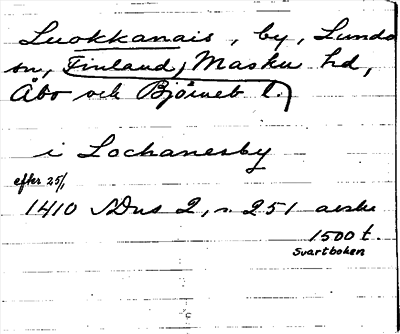 Luokkanais, by, Lundo
sn, Finland, Masku hd,
Åbo och Björneb l.
i Lochanesby
efter 25/1
1410 SDns 2, s. 251 avskr
1500 t.
Svartboken